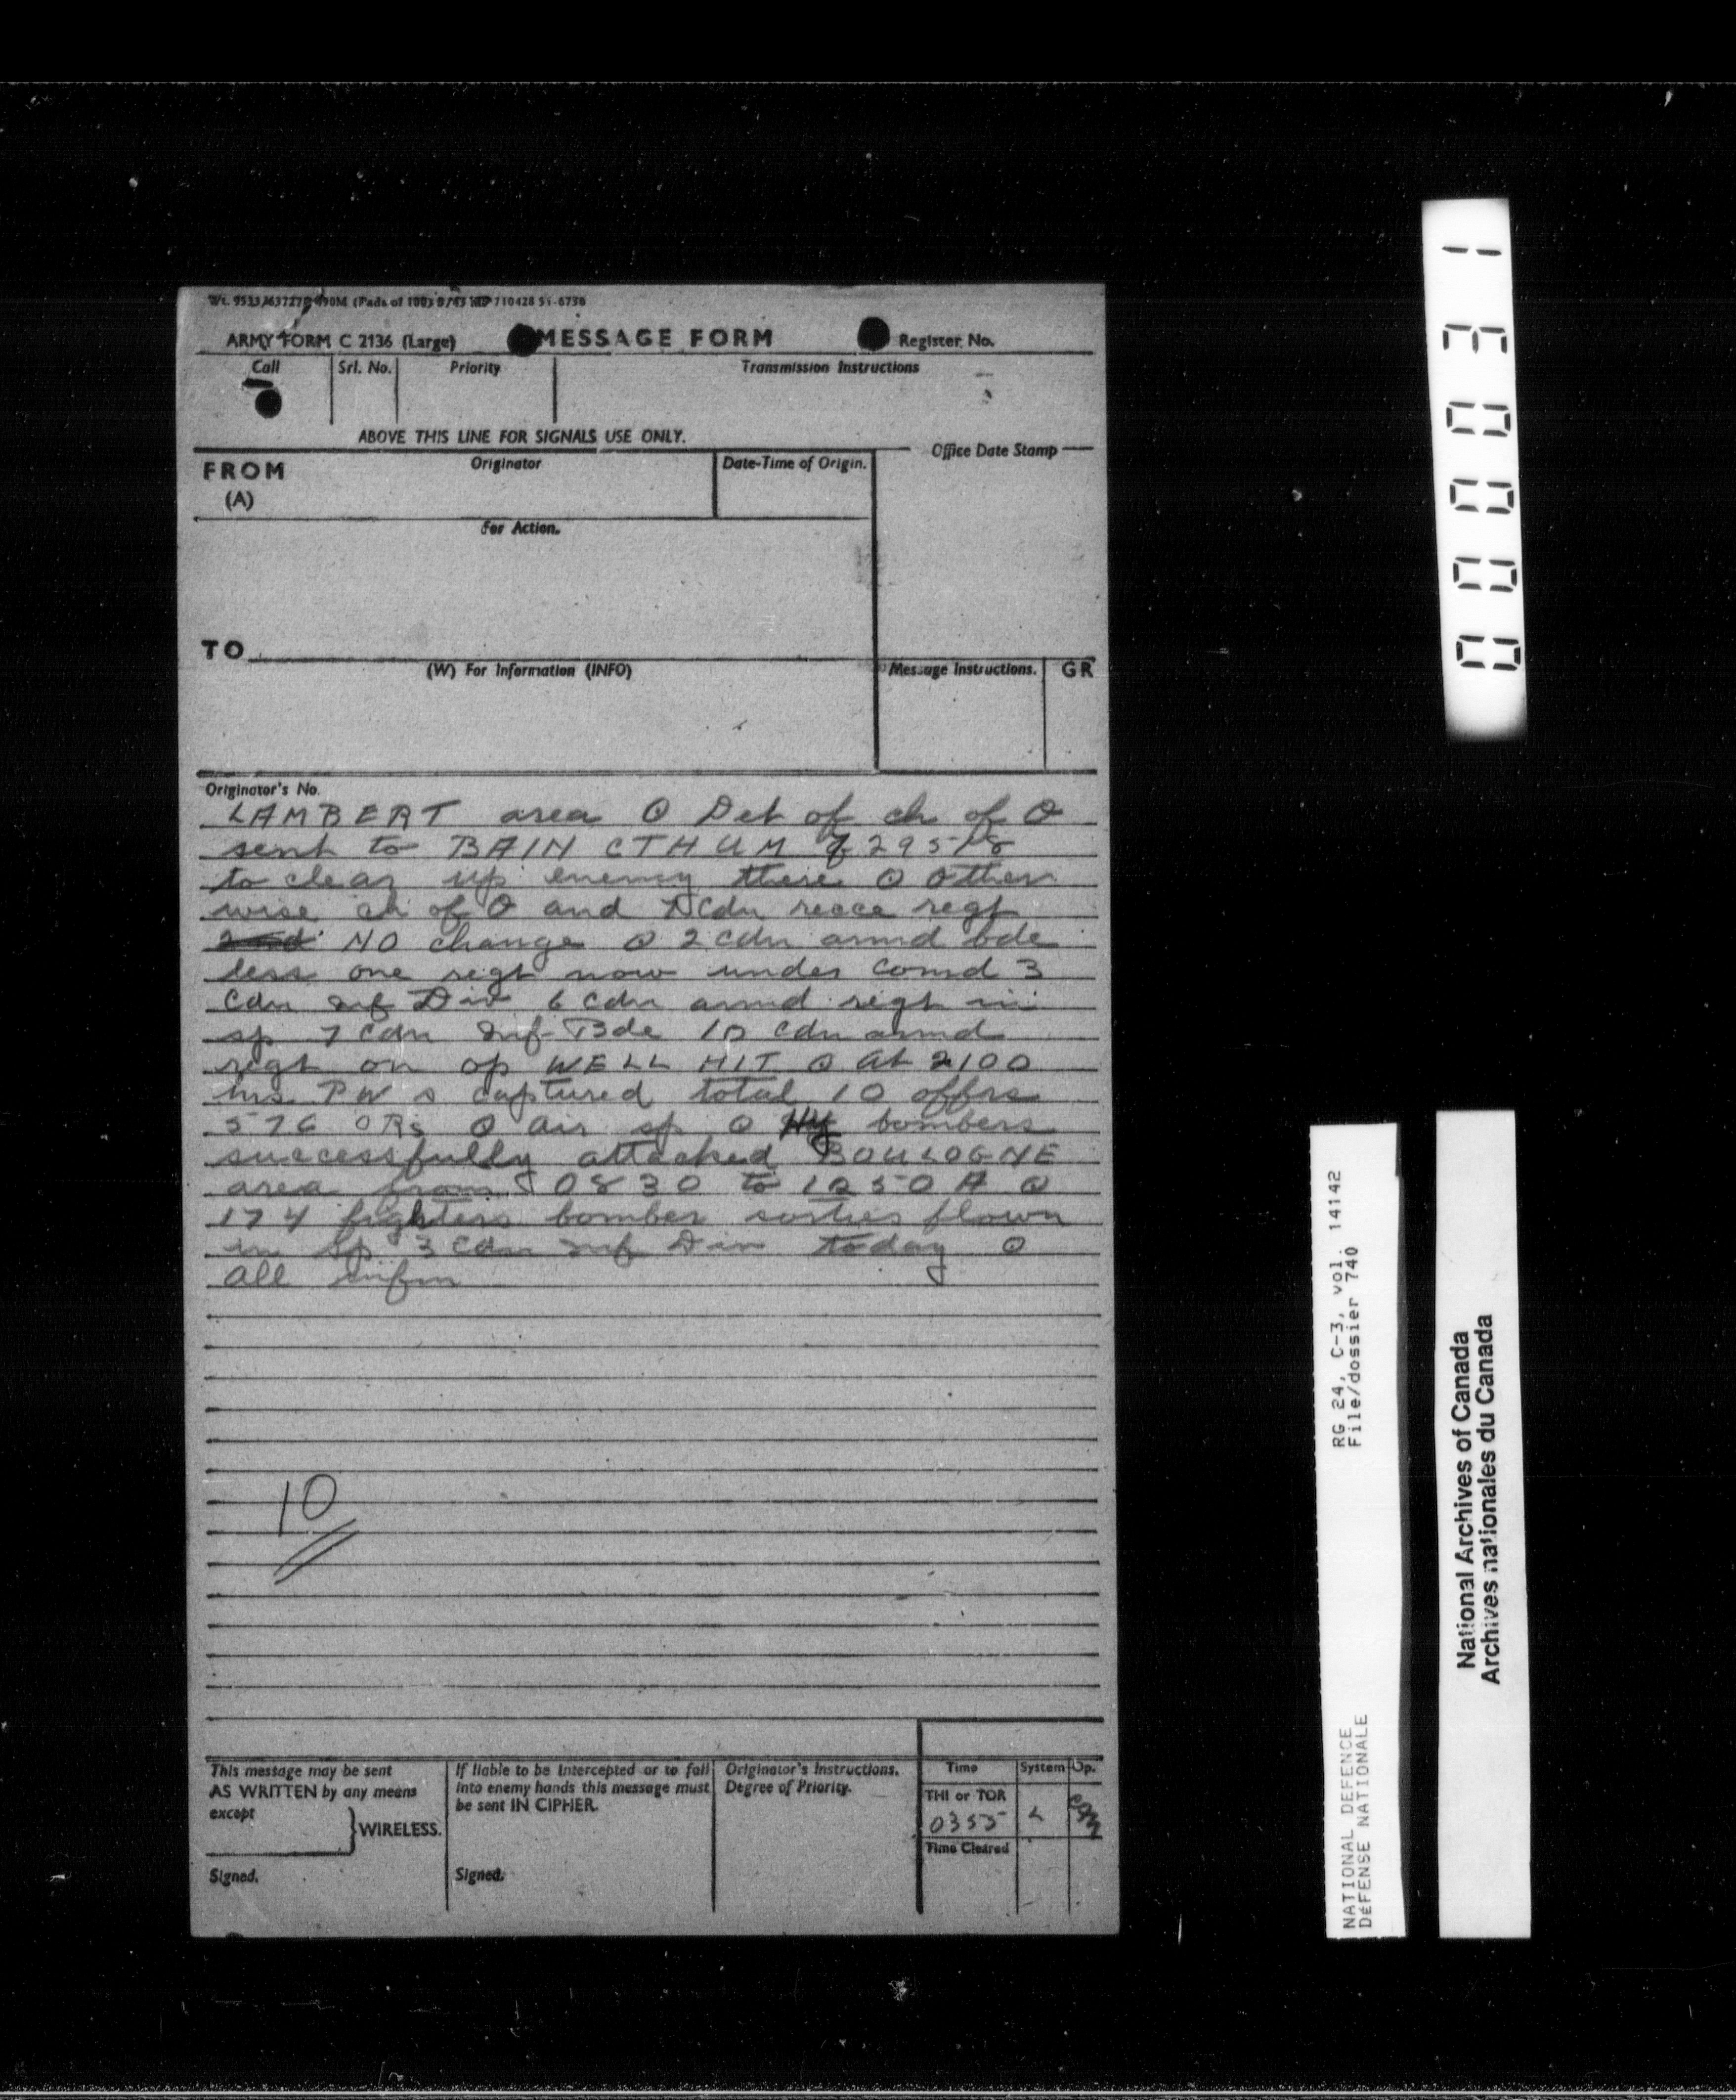 ARMY FORM C 2136 (Large)
MESSAGE FORM
Register No.
Call
Srl. No.
Priority
Transmission Instructions
ABOVE THIS LINE FOR SIGNALS USE ONLY.
FROM
(A)
Originator
Date-Time of Origin.
Office Date Stamp
For Action.
TO
(W) For Information (INFO)
Message Instructions.
GR
Originator's No.
LAMBERT area O Det of ch of O
sent to BAIN CTHUM
to clear up enemy there O Other
wise ch of O and 7 Cdn recce regt
NO change O 2 cdn armd bde
less one regt now under comd 3
Cdn inf Div 6 cdn armd regt in
sp 7 cdn inf Bde 10 cdn armd
regt on op WELL HIT O at 2100
hrs PW s captured total 10 offrs
576 ORs O air sp O Hy bombers
successfully attacked BOULOGNE
area from 0830 to 1250 A O
174 fighters bomber sorties flown
in sp 3 Cdn inf Div today O
all infm
10
This message may be sent
AS WRITTEN by any means
except
WIRELESS.
Signed.
If liable to be intercepted or to fall
into enemy hands this message must
be sent IN CIPHER.
Signed.
Originator's Instructions.
Degree of Priority.
Time
System
Op.
THI or TOR
0355
L
Time Cleared
00031
RG 24, C-3, vol. 14142
File/dossier 740
NATIONAL DEFENCE
DÉFENSE NATIONALE
National Archives of Canada
Archives nationales du Canada